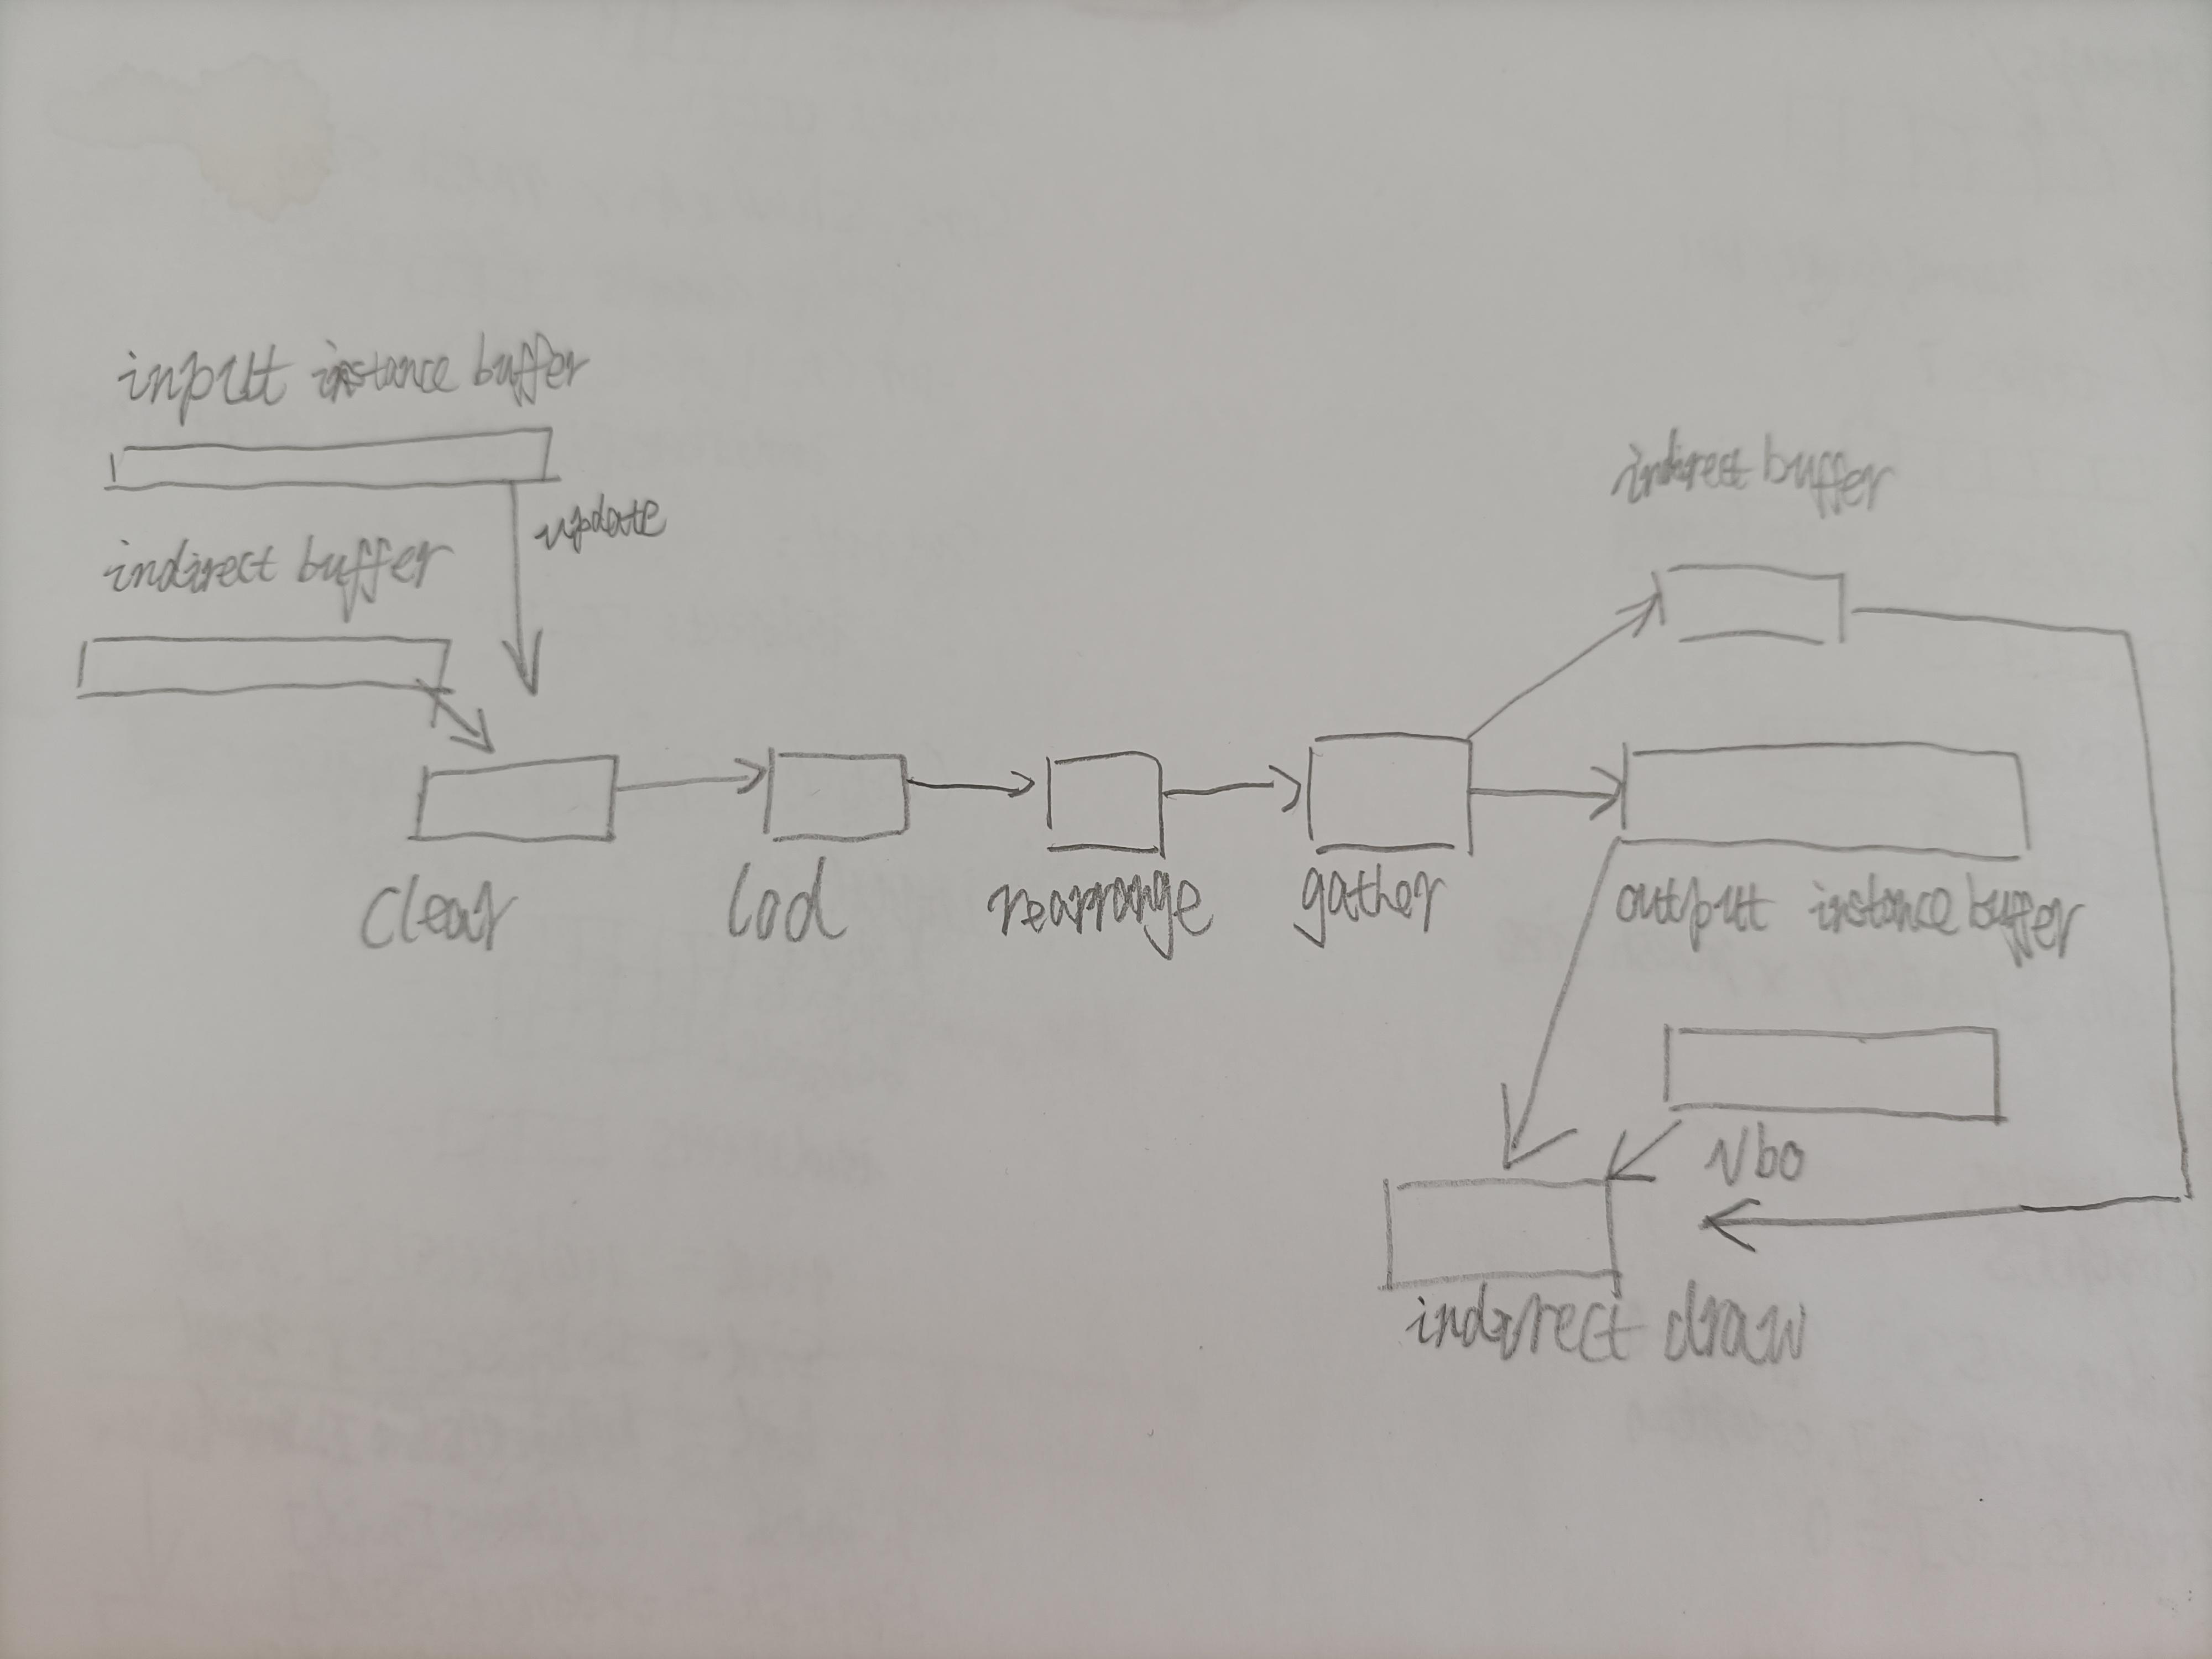 input instance buffer
update
indirect buffer
indirect buffer
clear
lod
rearrange
gather
output instance buffer
Vbo
indirect draw